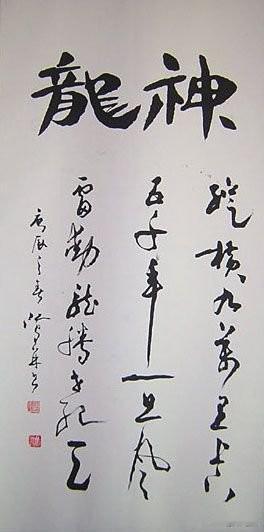 神龍
縱橫九萬里上下
五千年一旦風
雷動龍騰世紀天
庚辰之春